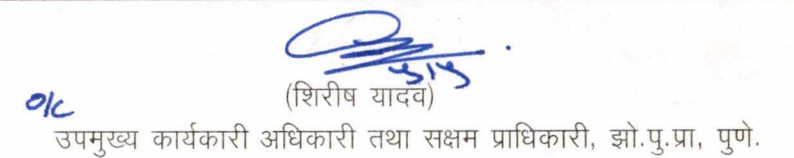 (शिरीष यादव)
o/c
उपमुख्य कार्यकारी अधिकारी तथा सक्षम प्राधिकारी, झो.पु.प्रा, पुणे.